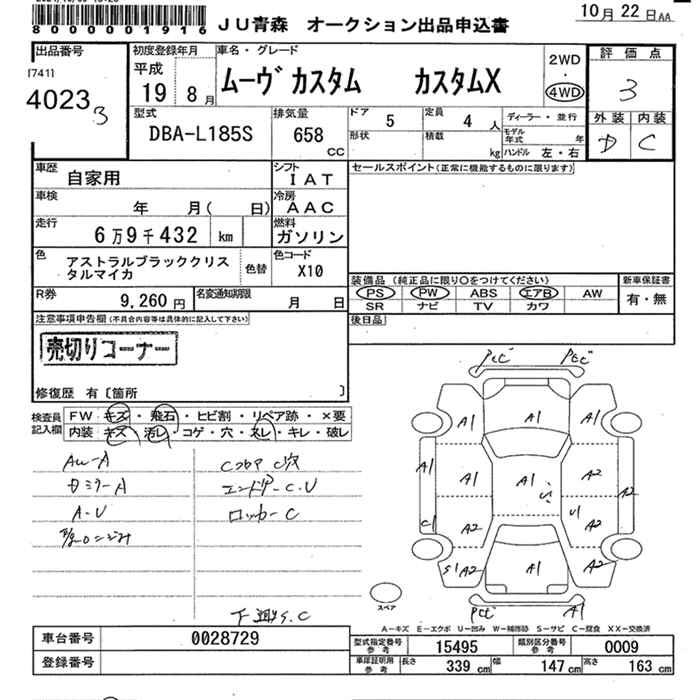 8000001916
JU青森 オークション出品申込書
10月22日AA
出品番号
[741]
40233
初度登録年月
平成
19 8月
車名・グレード
ムーヴカスタム カスタムX
2WD
・
4WD
評価点
3
外装 内装
D C
型式
DBA-L185S
排気量
658
CC
ドア 5
形状
定員 4 人
積載 kg
ディーラー・並行
モデル年式 年
ハンドル 左・右
車歴 自家用
シフト IAT
車検 年 月( 日)
冷房 AAC
走行 6万9千432 km
燃料 ガソリン
色 アストラルブラッククリスタルマイカ
色替
色コード X10
R券 9,260円
名変通知期限 月 日
セールスポイント(正常に機能するものに限ります)
装備品 (純正品に限り○をつけてください)
PS PW ABS エアB AW
SR ナビ TV カワ
新車保証書
有・無
後日品
注意事項申告欄(不具合内容等は具体的に記入して下さい)
売切りコーナー
修復歴 有〔箇所 〕
検査員記入欄
FW キズ・飛石・ヒビ割・リペア跡・×要
内装 キズ・汚レ・コゲ・穴・スレ・キレ・破レ
AW-A
ドミラーA
A-U
C穴
エンドア-C.U
ロッカーC
下廻S.C
A1 A1 A1
A1 A2 A1 A2 A2
C1 A2 U A2
S1 A2 A1 A2
A1
スペア
A-キズ E-エクボ U-凹み W-補修跡 S-サビ C-腐食 XX-交換済
車台番号 0028729
登録番号
型式指定番号参考 15495
類別区分番号参考 0009
車庫証明用参考
長さ 339 cm
幅 147 cm
高さ 163 cm